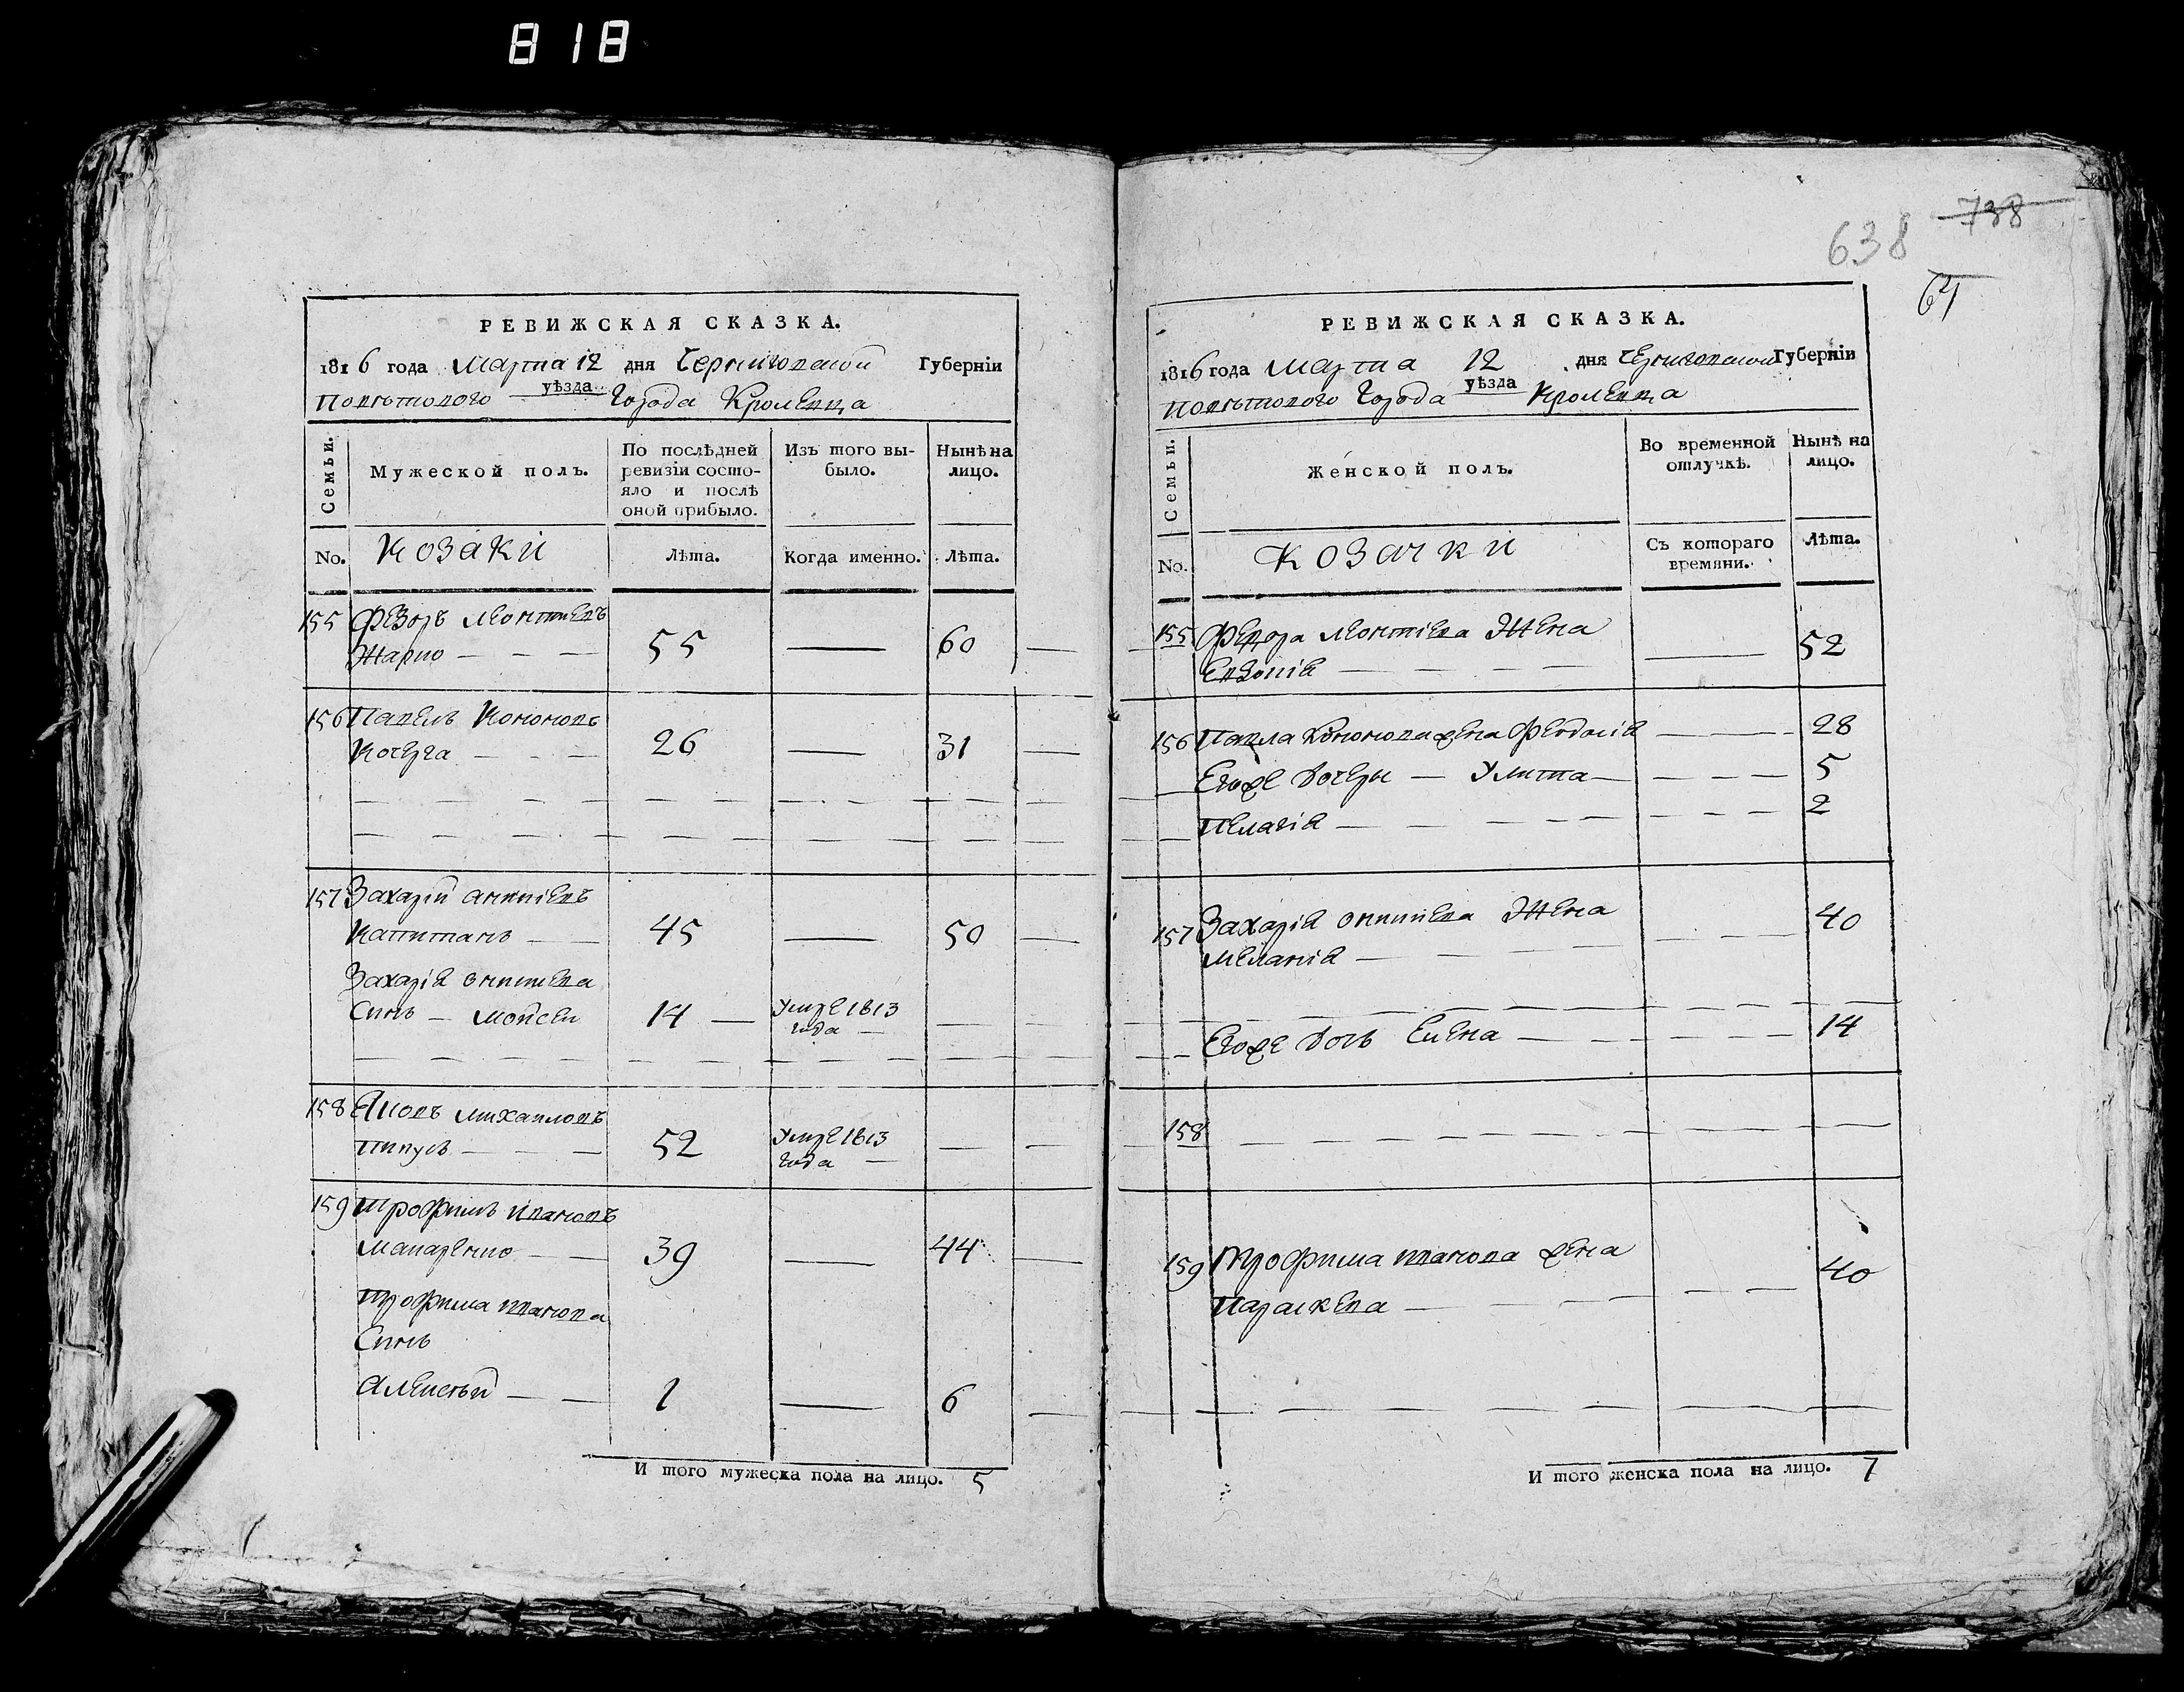 818
638 738
64
РЕВИЖСКАЯ СКАЗКА.
1816 года Марта 12 дня Черниговской Губерніи
Повѣтового уѣзда Города Кролевца
Семьи.
Мужеской полъ.
По послѣдней ревизіи состояло и послѣ оной прибыло.
Изъ того выбыло.
Нынѣ на лицо.
No. Козаки Лѣта. Когда именно. Лѣта.
155 Федоръ Леонтиевъ
Жарко — — — 55 — 60 —
156 Павелъ Кононовъ
Кочерга — — — 26 — 31 —
157 Захарій
Капитанъ — 45 — 50 —
Захарія
Синъ — Мойсей 14 — Умре 1813
года —
158 Яковъ Михаиловъ
52 Умре 1813
года —
159 Трофимъ Ивановъ
Макаренко — 39 — 44 —
Трофима Иванова
Синъ
Алексѣй — — 1 — 6 —
И того мужеска пола на лицо. 5
РЕВИЖСКАЯ СКАЗКА.
1816 года Марта 12 дня Черниговской Губерніи
Повѣтового Города уѣзда Кролевца
Семьи.
Женской полъ.
Во временной отлучкѣ.
Нынѣ на лицо.
No. Козачки Съ котораго времяни. Лѣта.
155 Федора Леонтіева Жена
Евдокія — — — — 52
156 Павла Кононова жена Феодосія — 28
Егоже дочери — Улита — 5
Пелагія — 2
157 Захарія Жена 40
Меланія —
Егоже дочь Елена — 14
158 — — —
159 Трофима Иванова жена 40
Параскева —
И того женска пола на лицо. 7